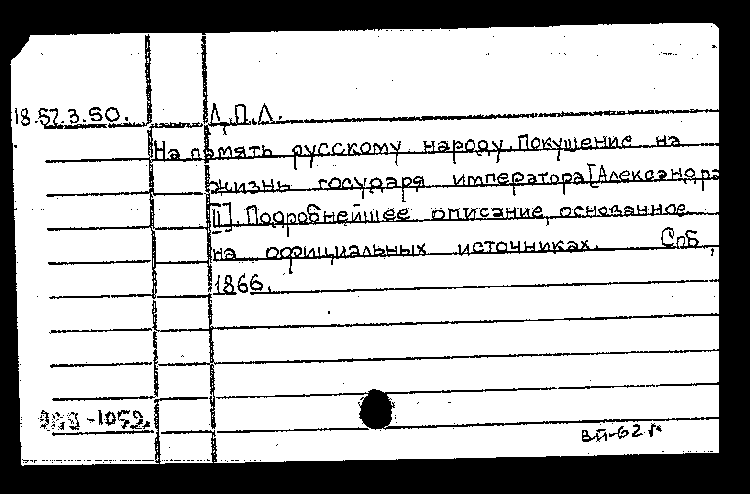 18.57.3.50. Л.П.Л.
На память русскому народу. Покушение на
жизнь государя императора [Александра
II]. Подробнейшее описание, основанное
на официальных источниках. СпБ,
1866.
-1059.
ВЙ-62г